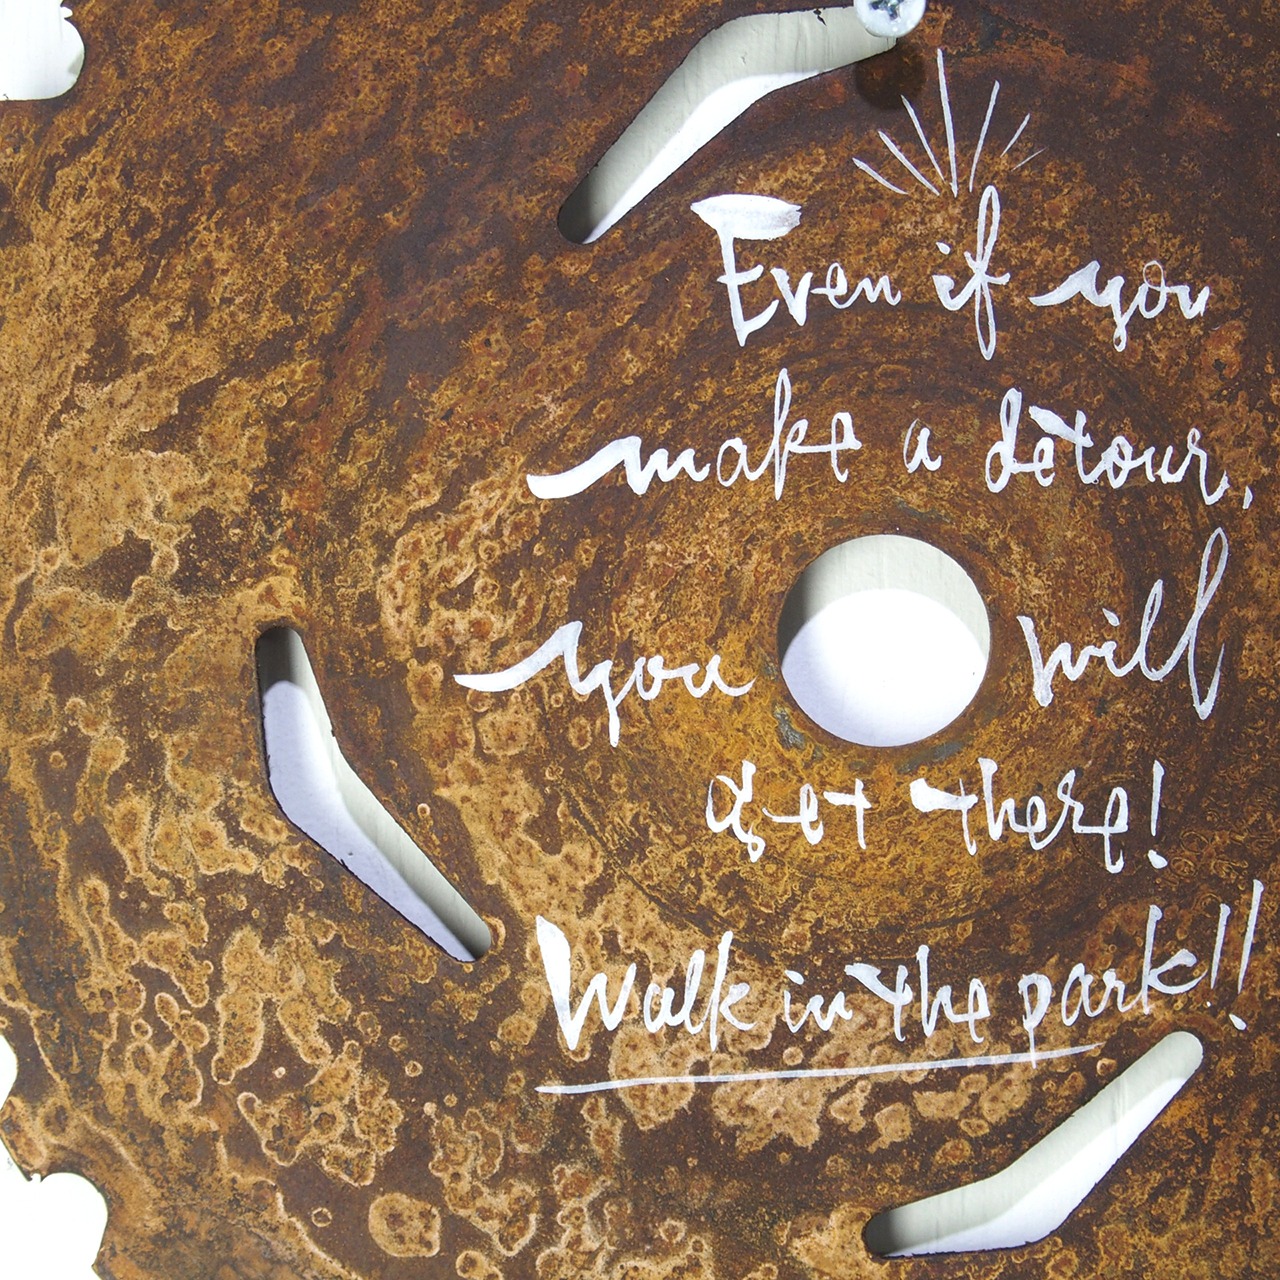 Even if you
make a detour,
you will
get there!
Walk in the park!!